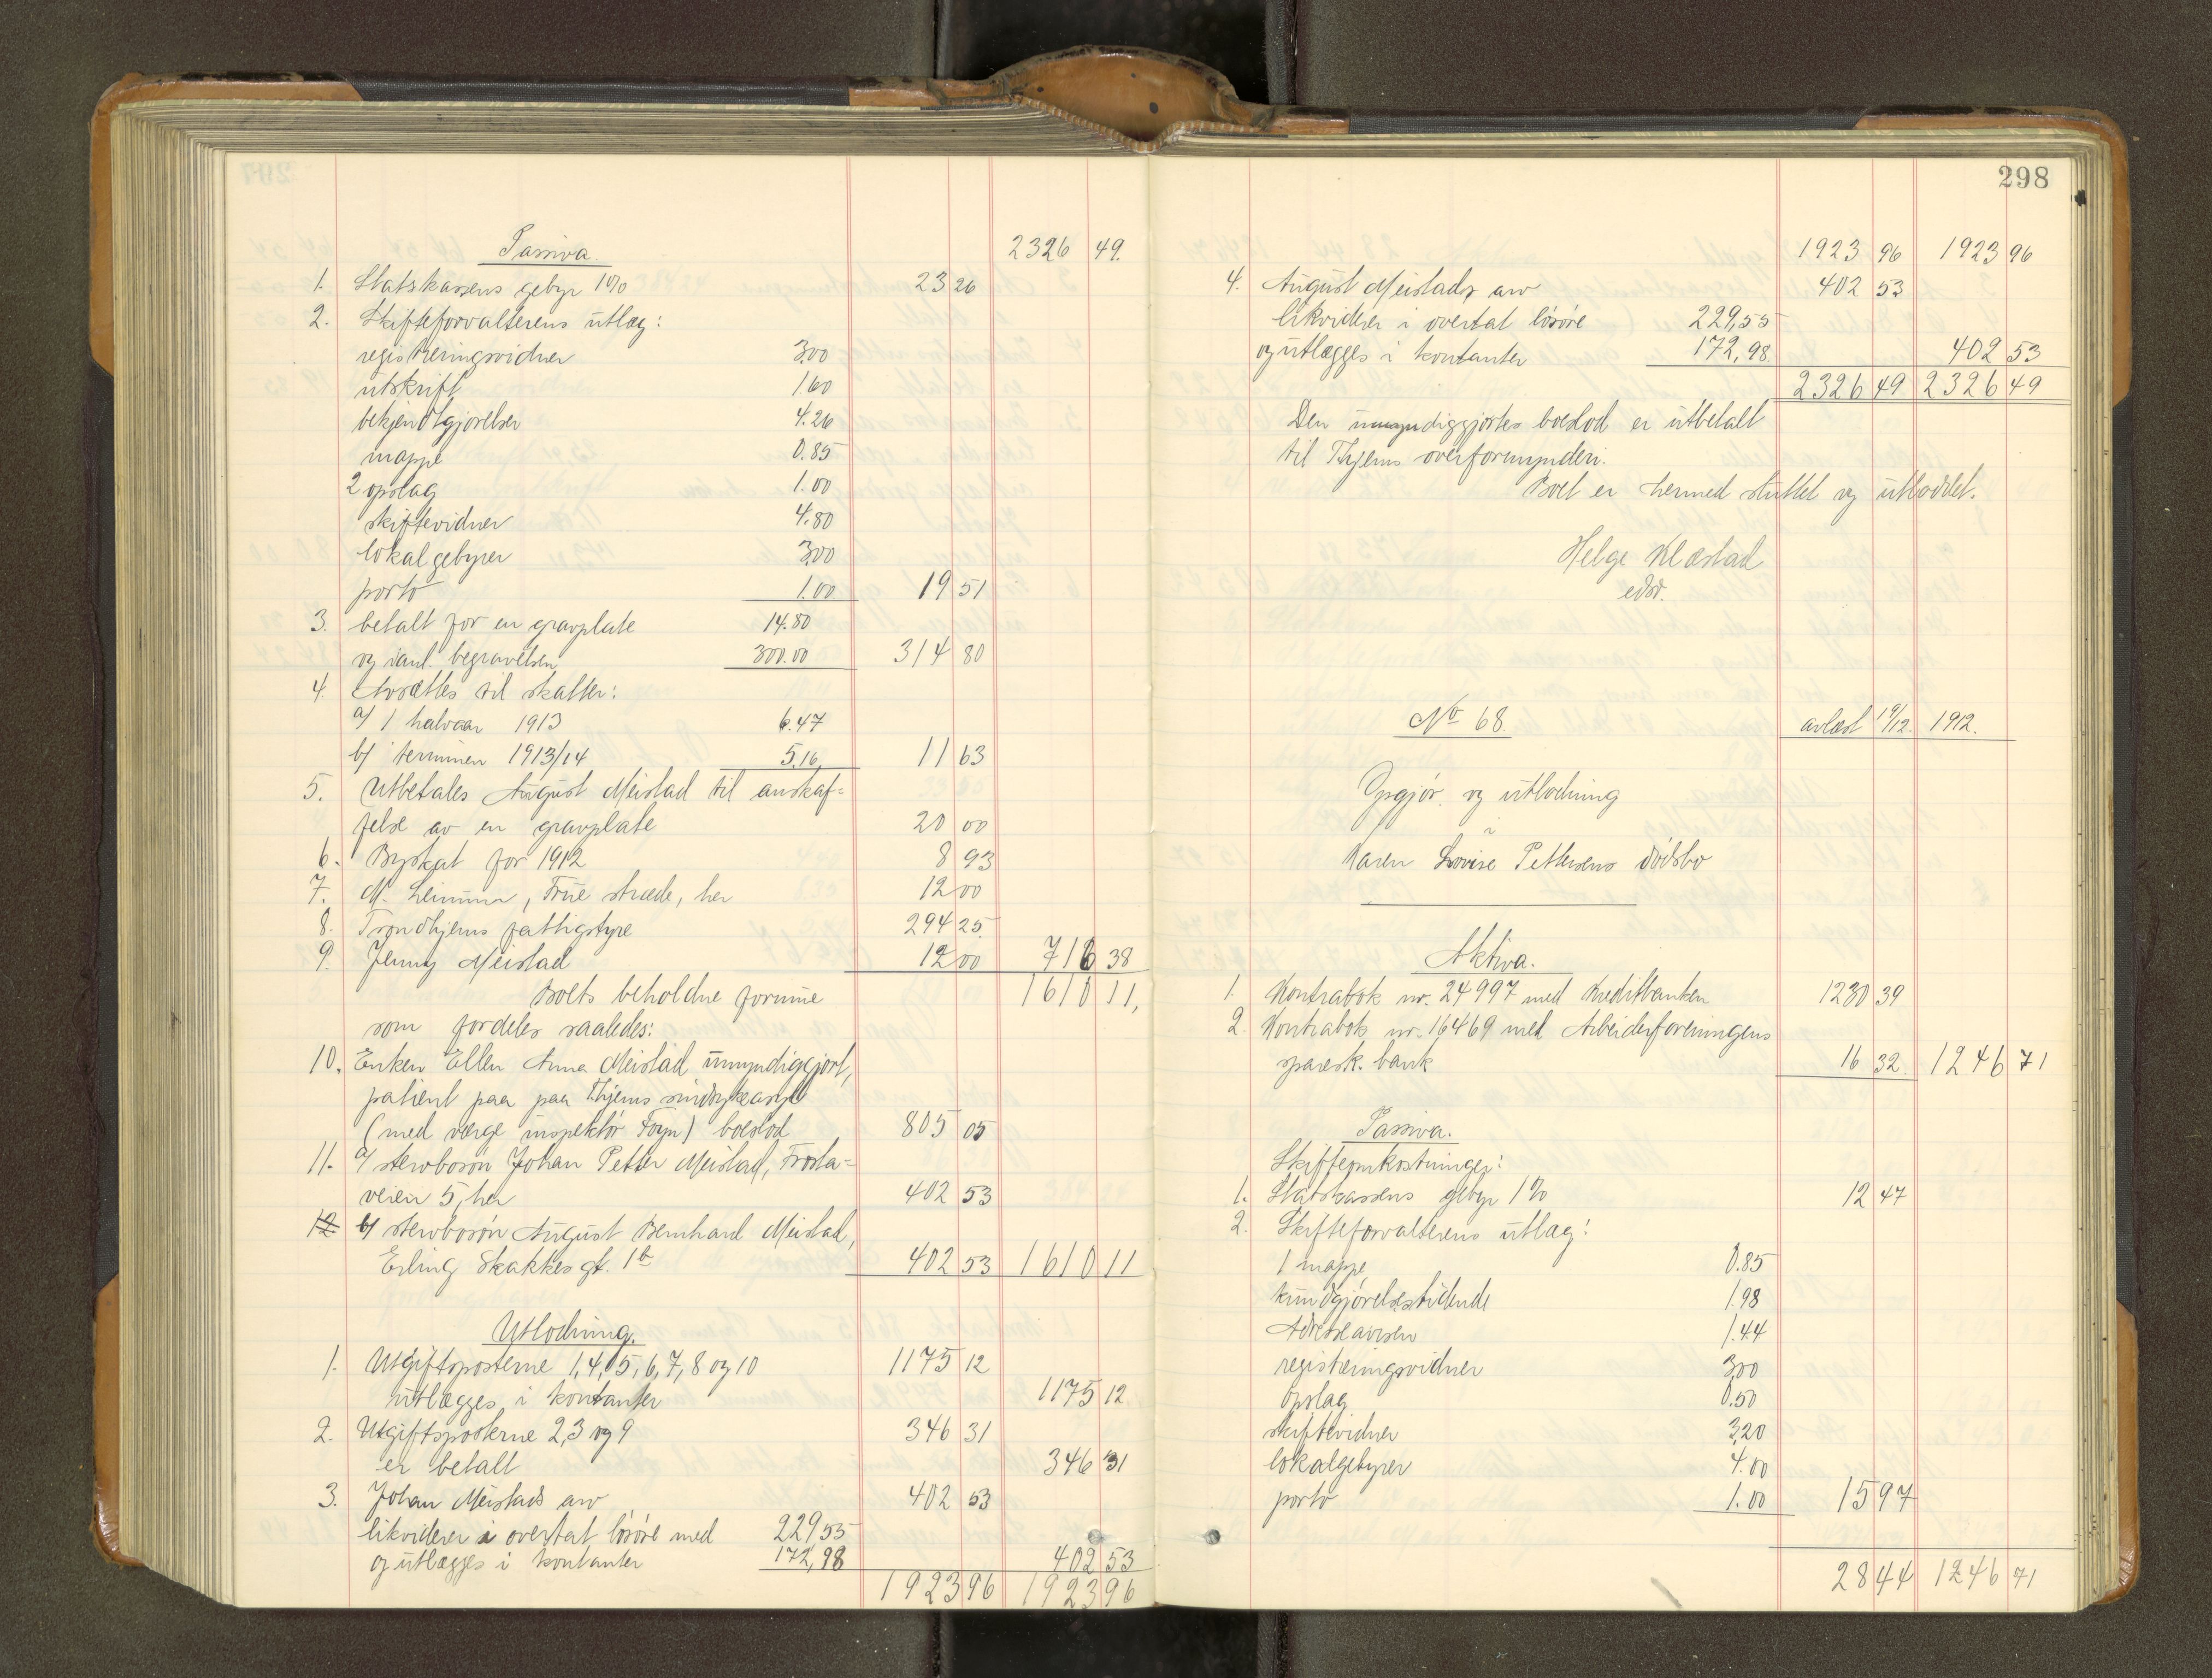 Passiva. 2326 49.
1. Statskassens gebyr 1% 23 26
2. Skifteforvalterens utlæg:
registreringsvidner 3.00
utskrift 1.60
bekjendtgjørelser 4.26
mappe 0.85
2 opslag 1.00
skiftevidner 4.80
lokalgebyrer 3.00
porto 1.00 19 51
3. betalt for en gravplate 14.80
og i anl. begravelsen 300.00 314 80
4. Avsættes til skatter:
a/ 1 halvaar 1913 6.47
b/ terminen 1913/14 5.16 11 63
5. Utbetales August Meistad til anskaf=
felse av en gravplate 20 00
6. Byskat for 1912 8 93
7. M. , Frue stræde, her 12 00
8. Trondhjems fattigstyre 294 25
9. Jenny Meistad 12 00 716 38
Boets beholdne formue 1610 11,
som fordeles saaledes:
10. Enken Ellen Anna Meistad umyndiggjort,
patient paa paa Thjems sindsykeasyl
(med værge inspektør Foyn) boeslod 805 05
11. a/ stervbosøn Johan Petter Meistad, Frosta=
veien 5, her 402 53
12 b/ stervbosøn August Bernhard Meistad,
Erling Skakkes gt. 1b 402 53 1610 11
Utlodning.
1. Utgiftsposterne 1,4,5,6,7,8 og 10 1175 12
utlægges i kontanter 1175 12
2. Utgiftsposterne 2,3 og 9 346 31
er betalt 346 31
3. Johan Meistads arv 402 53
likviderer i overtat løsøre med 229 55
og utlægges i kontanter 172,98 402 53
1923 96 1923 96
298
1923 96 1923 96
4. August Meistads arv 402 53
likviderer i overtat løsøre 229,55
og utlægges i kontanter 172,98 402 53
2326 49 2326 49
Den umyndiggjortes boeslod er utbetalt
til Thjems overformynderi.
Boet er hermed sluttet og utloddet.
Helge Klæstad
edsv.
No 68. avlæst 19/12. 1912.
Opgjør og utlodning
i
Karen Lovise Pettersens dødsbo
Aktiva.
1. Kontrabok nr. 24997 med Kreditbanken 1230 39
2. Kontrabok nr. 16469 med Arbeiderforeningens
sparesk. bank 16 32 1246 71
Passiva.
Skifteomkostninger:
1. Statskassens gebyr 1% 12 47
2. Skifteforvalterens utlæg:
1 mappe 0.85
kundgjørelsestidende 1.98
Adresseavisen 1.44
registreringsvidner 3.00
opslag 0.50
skiftevidner 3.20
lokalgebyrer 4.00
porto 1.00 15 97
28 44 1246 71